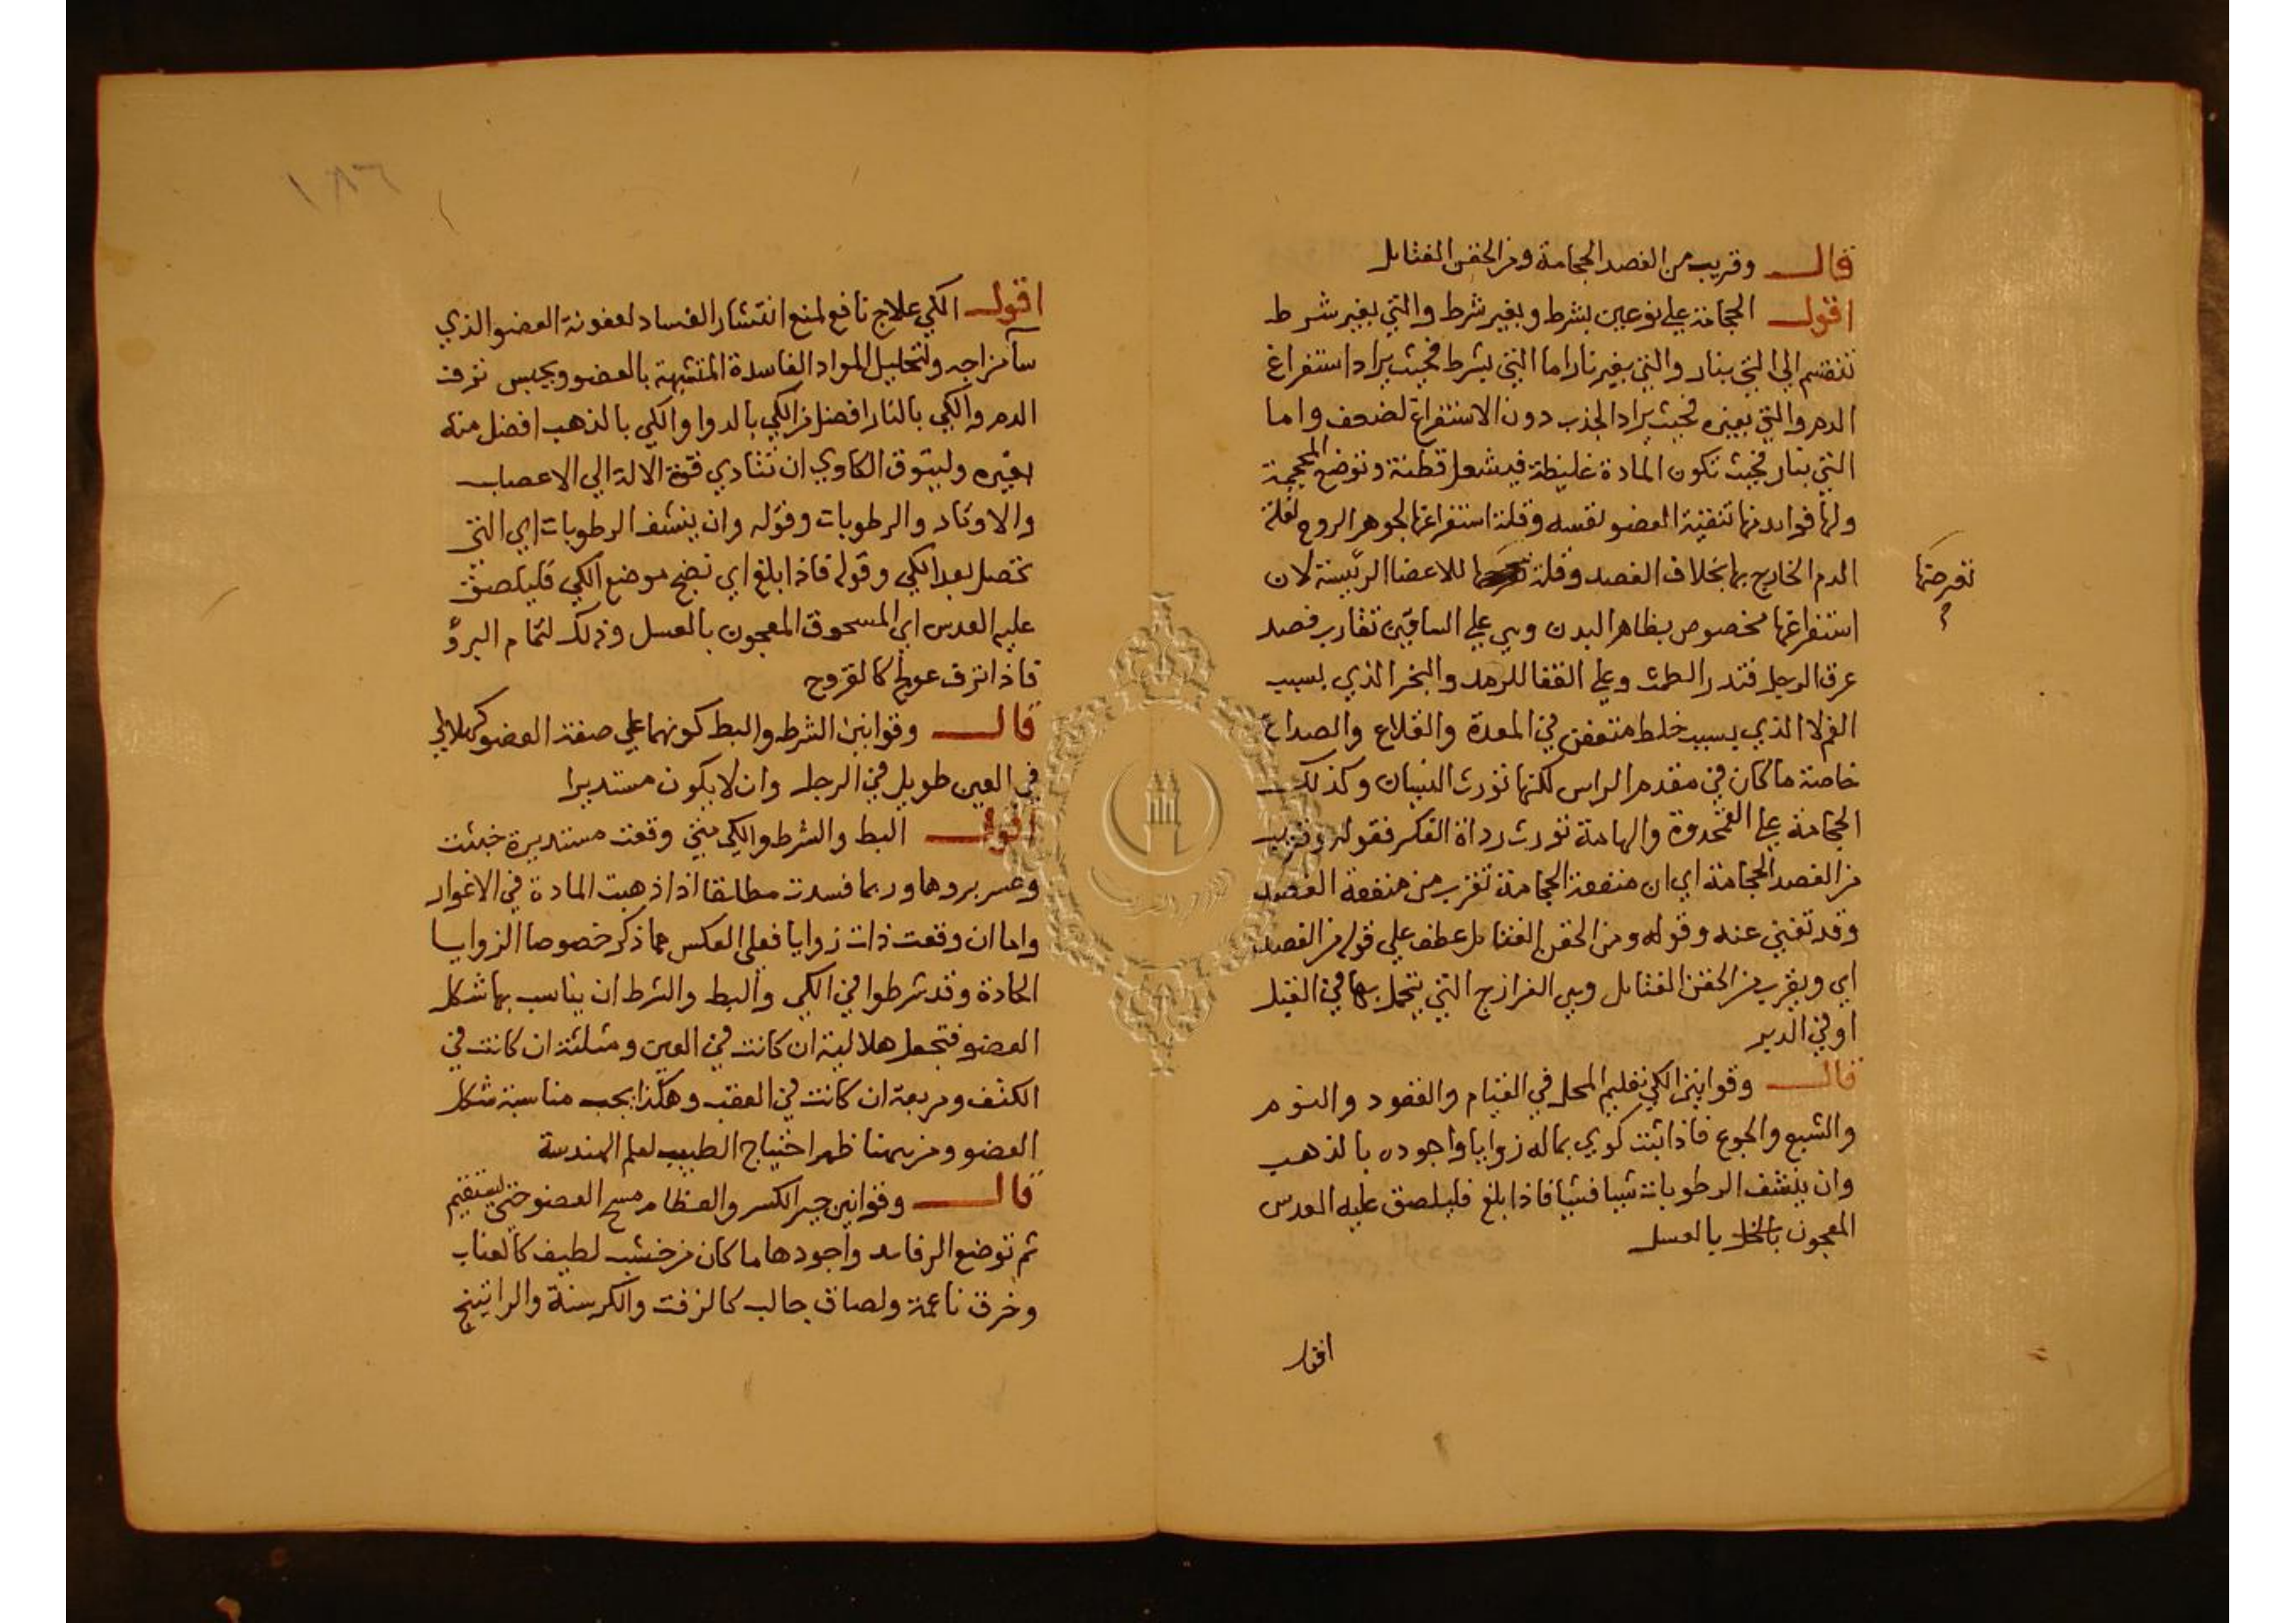 قال وقريب من الفصد الحجامة ومن الحقن الفتايل
اقول الحجامة علي نوعين بشرط وبغير شرط والتي بغير شرط
تنقسم الي التي بنار والتي بغير نار اما التي بشرط فحيث يراد استفراغ
الدم والتي بغيره فحيث يراد الجذب دون الاستفراغ لضعف واما
التي بنار فحيث تكون المادة غليظة فيشعل قطنة وتوضع المحجمة
ولها فوايد منها تنقية العضو نفسه وقلة استفراغها لجوهر الروح لقلة
الدم الخارج بها بخلاف الفصد وقلة للاعضا الرئيسة لان
تعرضها
استفراغها مخصوص بظاهر البدن وهي علي الساقين تقارب فصد
عرق الرجل فتدر الطمث وعلي القفا للرمد والبخر الذي بسبب
الفم لا الذي بسبب خلط متعفن في المعدة والقلاع والصداع
خاصة ما كان في مقدم الراس لكنها تورث النسيان وكذلك
الحجامة علي القمحدوة والهامة تورث رداة الفكر فقوله وقريب
من الفصد الحجامة اي ان منفعة الحجامة تقرب من منفعة الفصد
وقد تغني عنه وقوله ومن الحقن الفتايل عطف علي قوله من الفصد
اي ويقرب من الحقن الفتايل وهي الفرازج التي يتحمل بها في القبل
او في الدبر
قال وقوانين الكي تعليم المحل في القيام والقعود والنوم
والشبع والجوع فاذا ثبت كوي بماله زوايا واجوده بالذهب
وان ينشف الرطوبات شيا فشيا فاذا بلغ فليلصق عليه العدس
المعجون بالخل بالعسل
اقول
١٨٦
اقول الكي علاج نافع لمنع انتشار الفساد لعفونة العضو الذي
سآ مزاجه ولتحليل المواد الفاسدة المتشبهة بالعضو ويحبس نزف
الدم والكي بالنار افضل من الكي بالدوا والكي بالذهب افضل منه
بغيره وليتوق الكاوي ان تتادي قوة الالة الي الاعصاب
والاوتاد والرطوبات وقوله وان ينشف الرطوبات اي التي
تحصل بعد الكي وقوله فاذا بلغ اي نضج موضع الكي فليلصق
عليه العدس اي المسحوق المعجون بالعسل وذلك لتمام البرؤ
فاذا نزف عولج كالقروح
قال وقوانين الشرط والبط كونهما علي صفة العضو كهلالي
في العين طويل في الرجل وان لا يكون مستديرا
اقول البط والشرط والكي متي وقعت مستديرة خبثت
وعسر بروها وربما فسدت مطلقا اذا ذهبت المادة في الاغوار
واما ان وقعت ذات زوايا فعلي العكس مما ذكر خصوصا الزوايا
الحادة وقد شرطوا في الكي والبط والشرط ان يناسب بها شكل
العضو فتجعل هلالية ان كانت في العين ومثلثة ان كانت في
الكتف ومربعة ان كانت في العقب وهكذا يجب مناسبة شكل
العضو ومن ههنا ظهر احتياج الطبيب لعلم الهندسة
قال وقوانين جبر الكسر والعظام مسح العضو حتي يستقيم
ثم توضع الرفايد واجودها ما كان من خشب لطيف كالعناب
وخرق ناعمة ولصاق جالب كالزفت والكرسنة والراتينج